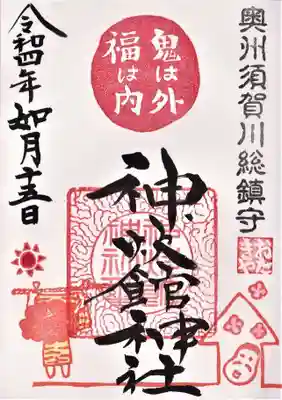 奥州須賀川総鎮守
鬼は外
福は内
神炊館神社
令和四年如月十五日